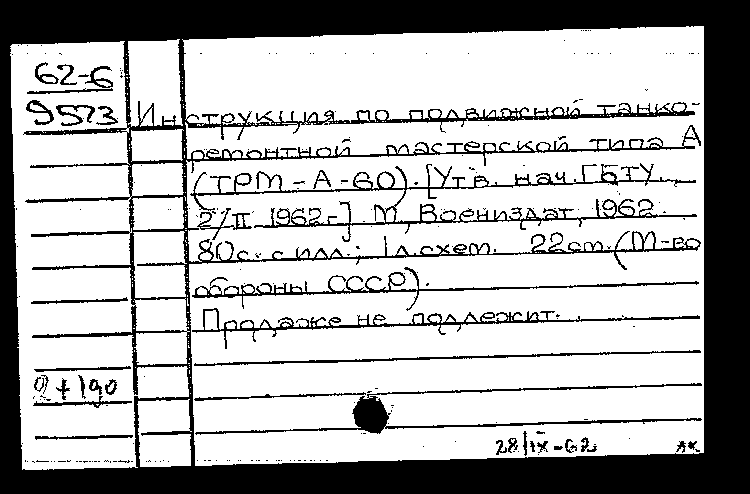 62-6
9573
Инструкция по подвижной танко-
ремонтной мастерской типа А
(ТРМ-А-60). [Утв. нач. ГБТУ
2/II 1962г.] М, Воениздат, 1962.
80с. с илл.; 1л.схем. 22см. (М-во
обороны СССР).
Продаже не подлежит.
2+1
28/IX-62